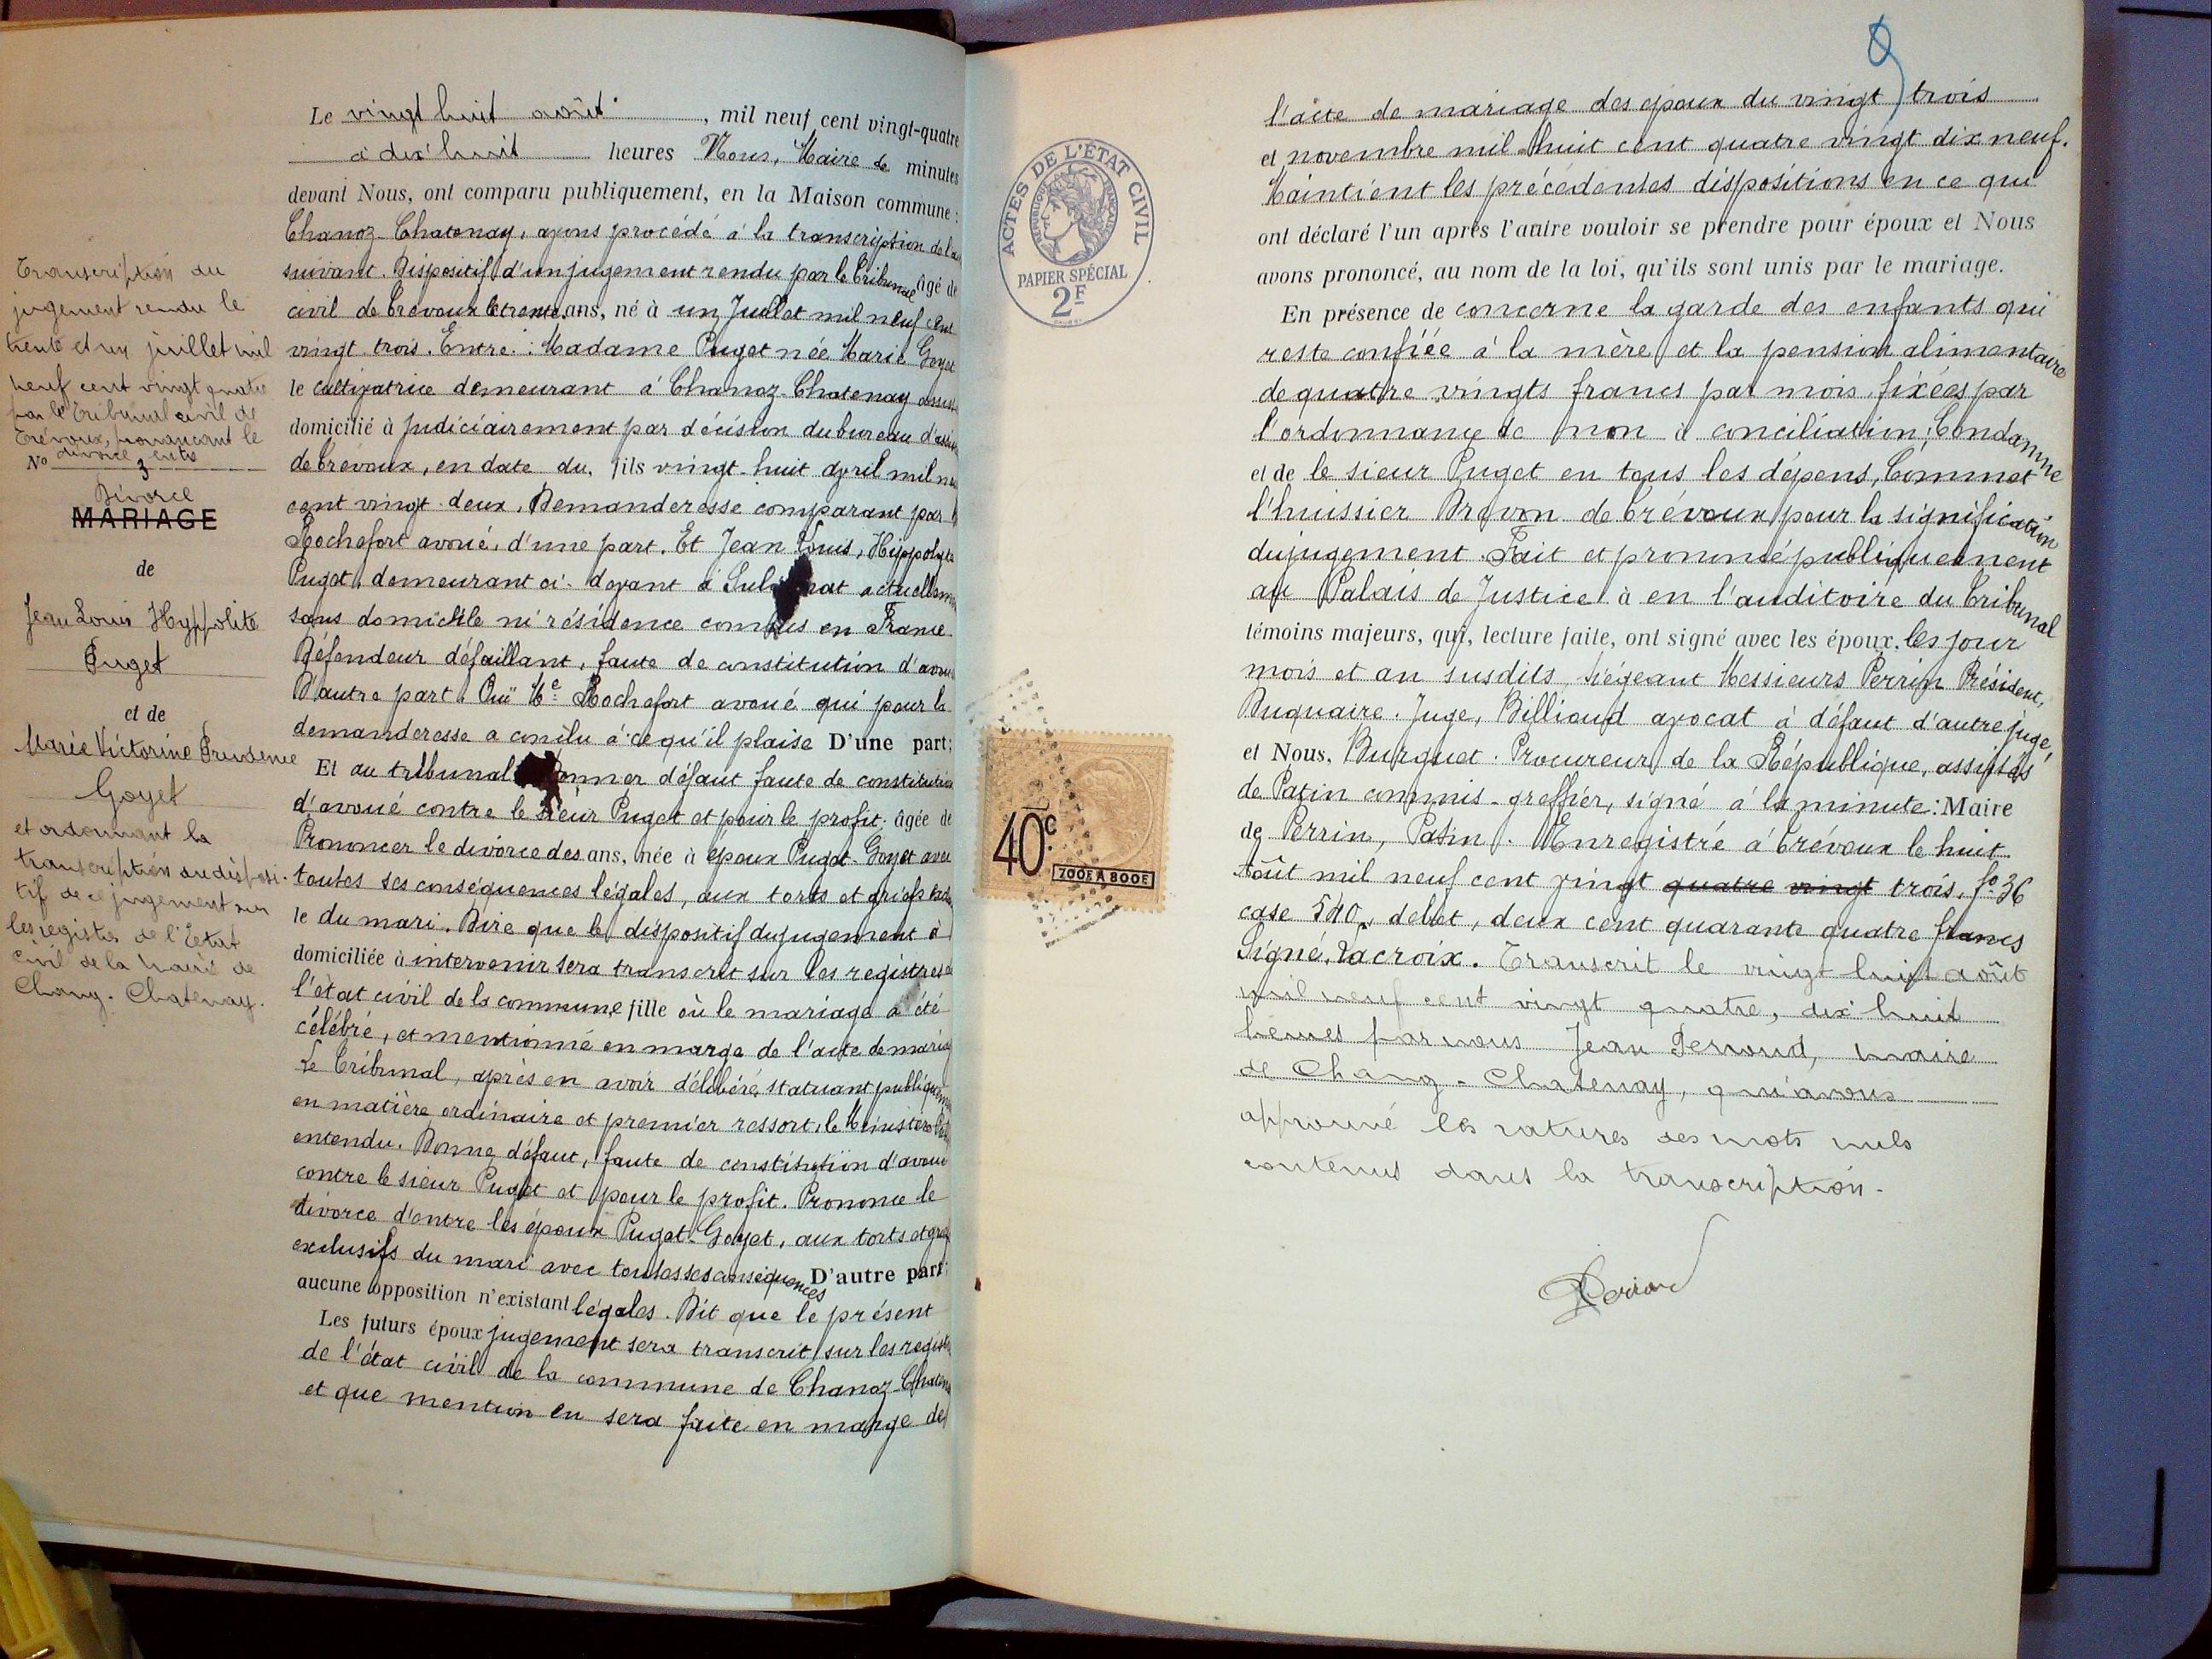 Transcription du
jugement rendu le
trente et un juillet mil
neuf cent vingt quatre
par le Tribunal civil de
Trévoux, prononçant le
divorce entre
No 3
Divorce
MARIAGE
de
Jean Louis Hyppolite
Puget
et de
Marie Victorine Prudence
Goyet
et ordonnant la
transcription du disposi-
tif de ce jugement sur
les registres de l'Etat
civil de la mairie de
Chanoz-Chatenay.
Le vingt huit août, mil neuf cent vingt-quatre
à dix huit heures Nous, Maire de minutes
devant Nous, ont comparu publiquement, en la Maison commune :
Chanoz-Chatenay, ayons procédé à la transcription de la
suivant. Dispositif d'un jugement rendu par le Tribunal âgé de
civil de Trévoux le trente ans, né à un Juillet mil neuf cent
vingt trois. Entre : Madame Puget née Marie Goyet
le cultivatrice demeurant à Chanoz-Chatenay
domicilié à Judiciairement par décision du bureau
de Trévoux, en date du, fils vingt-huit avril mil
cent vingt-deux, Demanderesse comparant par
Rochefort avoué, d'une part. Et Jean Louis, Hyppolyte
Puget, demeurant ci-devant à actuellement
sans domicile ni résidence connus en France.
Défendeur défaillant, faute de constitution d'avoué
D'autre part. Ouï Me Rochefort avoué qui pour la
demanderesse a conclu à ce qu'il plaise D'une part;
Et au tribunal donner défaut faute de constitution
d'avoué contre le sieur Puget et pour le profit. âgée de
Prononcer le divorce des ans, née à époux Puget-Goyet avec
toutes ses conséquences légales, aux torts et griefs
le du mari. Dire que le dispositif du jugement à
domiciliée à intervenir sera transcrit sur les registres de
l'état civil de la commune fille où le mariage a été
célébré, et mentionné en marge de l'acte de mariage
Le Tribunal, après en avoir délibéré, statuant publiquement
en matière ordinaire et premier ressort, le Ministère
entendu. Donne défaut, faute de constitution d'avoué
contre le sieur Puget et pour le profit. Prononce le
divorce d'entre les époux Puget-Goyet, aux torts et griefs
exclusifs du mari avec toutes ses conséquences D'autre part;
aucune opposition n'existant légales. Dit que le présent
Les futurs époux jugement sera transcrit sur les registres
de l'état civil de la commune de Chanoz-Chatenay
et que mention en sera faite en marge de
ACTES DE L'ÉTAT CIVIL
RÉPUBLIQUE FRANÇAISE
PAPIER SPÉCIAL
2F
40c
700F À 800F
l'acte de mariage des époux du vingt trois
et novembre mil huit cent quatre vingt dix neuf.
Maintient les précédentes dispositions en ce qui
ont déclaré l'un après l'autre vouloir se prendre pour époux et Nous
avons prononcé, au nom de la loi, qu'ils sont unis par le mariage.
En présence de concerne la garde des enfants qui
reste confiée à la mère et la pension alimentaire
de quatre vingts francs par mois, fixées par
l'ordonnance de non à conciliation; Condamne
et de le sieur Puget en tous les dépens, Commet
l'huissier Dravon de Trévoux pour la signification
du jugement. Fait et prononcé publiquement
au Palais de Justice à en l'auditoire du Tribunal
témoins majeurs, qui, lecture faite, ont signé avec les époux. les jour
mois et an susdits, siégeant Messieurs Perrin Président,
Duquaire. Juge, Billioud avocat à défaut d'autre juge,
et Nous, Burguet. Procureur de la République, assistés
de Patin commis-greffier, signé à la minute: Maire
de Perrin, Patin. Enregistré à Trévoux le huit
août mil neuf cent vingt quatre vingt trois, fo 36
case 540, debet, deux cent quarante quatre francs
Signé, Lacroix. Transcrit le vingt huit août
mil neuf cent vingt quatre, dix huit
heures par nous Jean Pernoud, maire
de Chanoz-Chatenay, qui avons
approuvé les ratures des mots nuls
contenus dans la transcription.